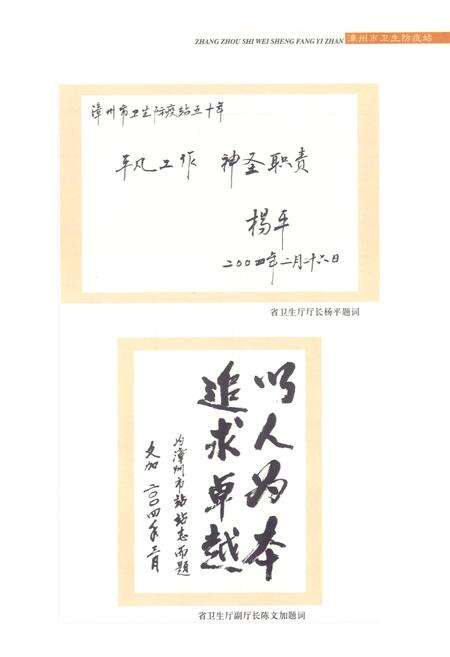 ZHANG ZHOU SHI WEI SHENG FANG YI ZHAN
漳州市卫生防疫站
漳州市卫生防疫站五十年
平凡工作 神圣职责
杨平
二00四年二月二十六日
省卫生厅厅长杨平题词
以人为本
追求卓越
为漳州市站站志而题
文加 二〇〇四年三月
省卫生厅副厅长陈文加题词